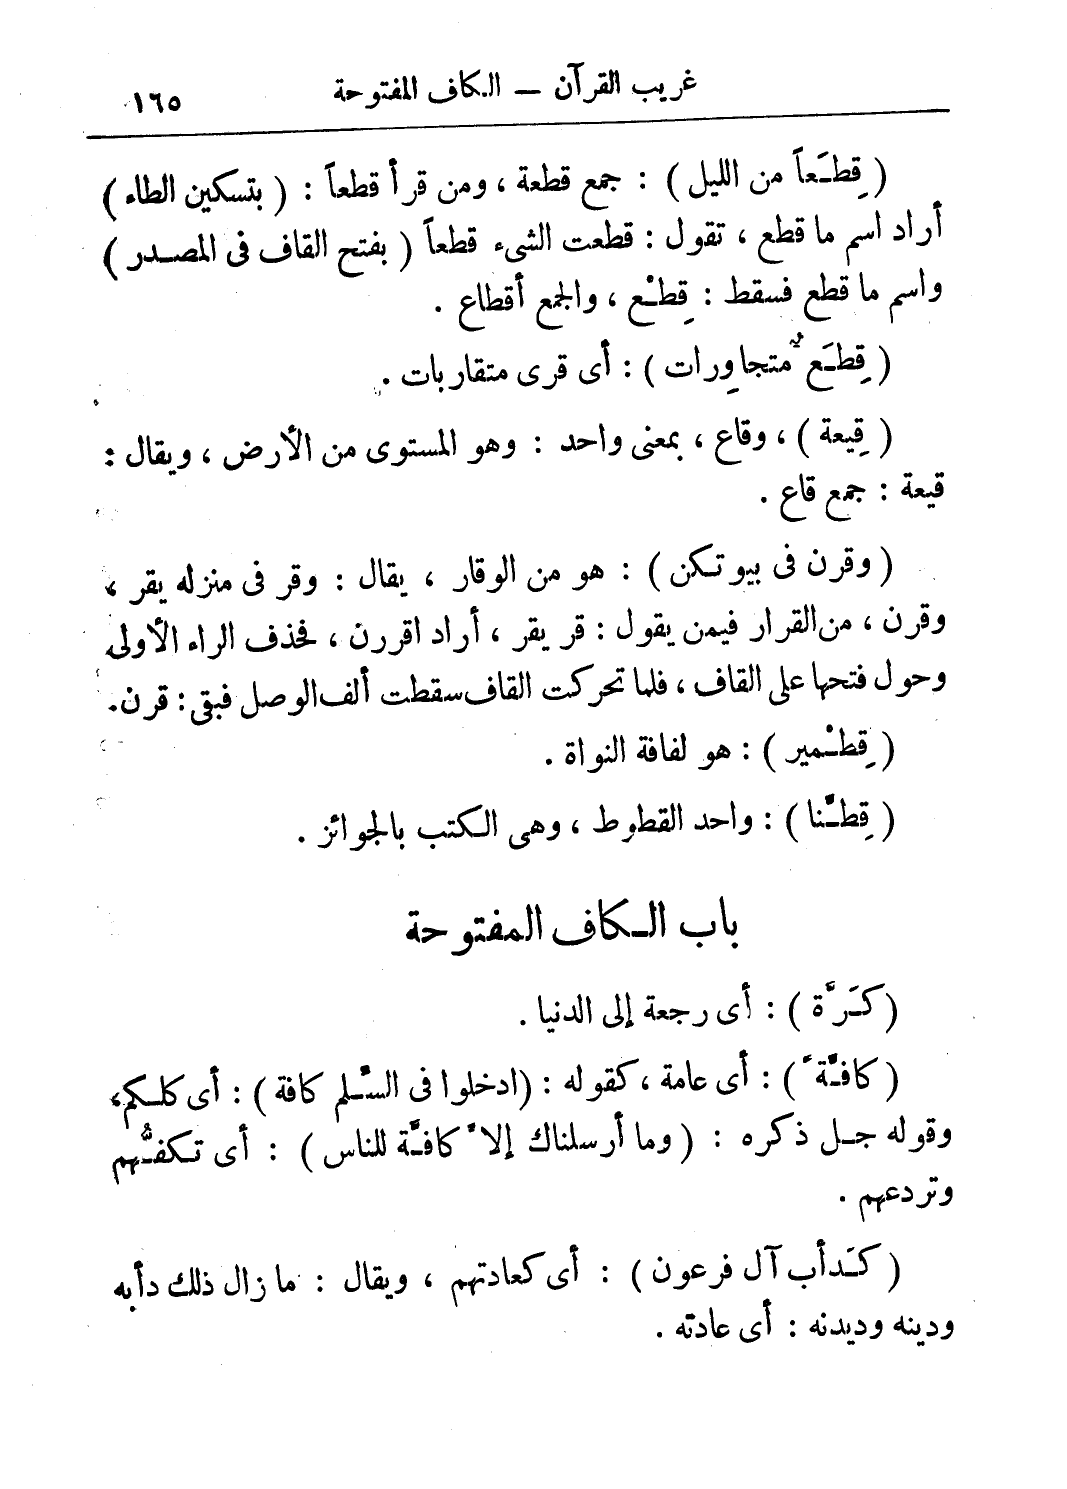 غريب القرآن — الكاف المفتوحة
١٦٥
( قِطَعاً من الليل ) : جمع قطعة ، ومن قرأ قطعاً : ( بتسكين الطاء )
أراد اسم ما قطع ، تقول : قطعت الشىء قطعاً ( بفتح القاف فى المصدر )
واسم ما قطع فسقط : قِطْع ، والجمع أقطاع .
( قِطَع متجاوِرات ) : أى قرى متقاربات .
( قِيعة ) ، وقاع ، بمعنى واحد : وهو المستوى من الأرض ، ويقال :
قيعة : جمع قاع .
( وقرن فى بيوتكن ) : هو من الوقار ، يقال : وقر فى منزله يقر ،
وقرن ، من القرار فيمن يقول : قر يقر ، أراد اقررن ، فحذف الراء الأولى
وحول فتحها على القاف ، فلما تحركت القاف سقطت ألف الوصل فبقى : قرن .
( قِطْمير ) : هو لفافة النواة .
( قِطَّنا ) : واحد القطوط ، وهى الكتب بالجوائز .
باب الكاف المفتوحة
( كَرَّة ) : أى رجعة إلى الدنيا .
( كافَّةً ) : أى عامة ، كقوله : ( ادخلوا فى السِّلم كافة ) : أى كلكم ،
وقوله جل ذكره : ( وما أرسلناك إلاّ كافَّة للناس ) : أى تكفُّهم
وتردعهم .
( كَدأب آل فرعون ) : أى كعادتهم ، ويقال : ما زال ذلك دأبه
ودينه وديدنه : أى عادته .